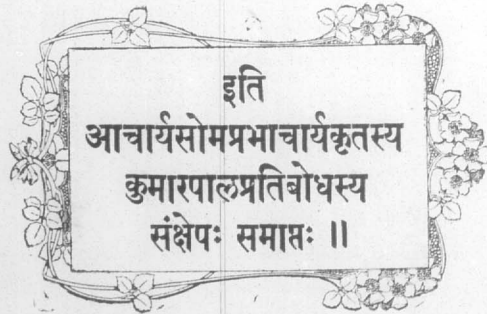 इति
आचार्यसोमप्रभाचार्यकृतस्य
कुमारपालप्रतिबोधस्य
संक्षेपः समाप्तः ॥